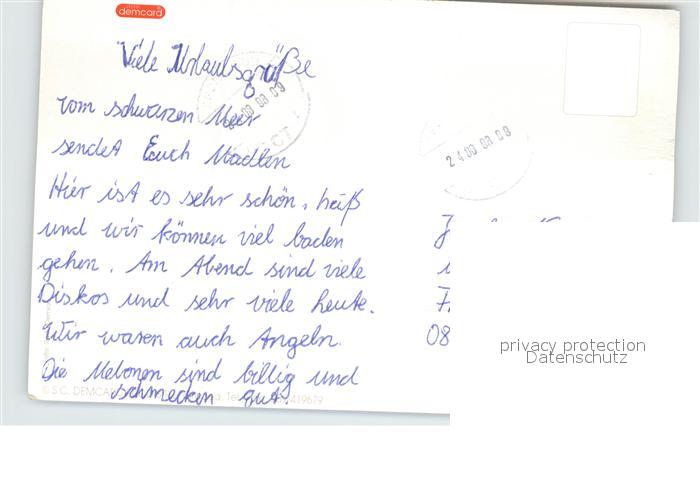 demcard
Viele Urlaubsgrüße
vom schwarzen Meer
sendet Euch Madlen
Hier ist es sehr schön, heiß
und wir können viel baden
gehen. Am Abend sind viele
Diskos und sehr viele heute.
Wir waren auch Angeln.
Die Melonen sind billig und
schmecken gut.
© S.C. DEMCARD
419679
24.00 00 08
08
privacy protection
Datenschutz